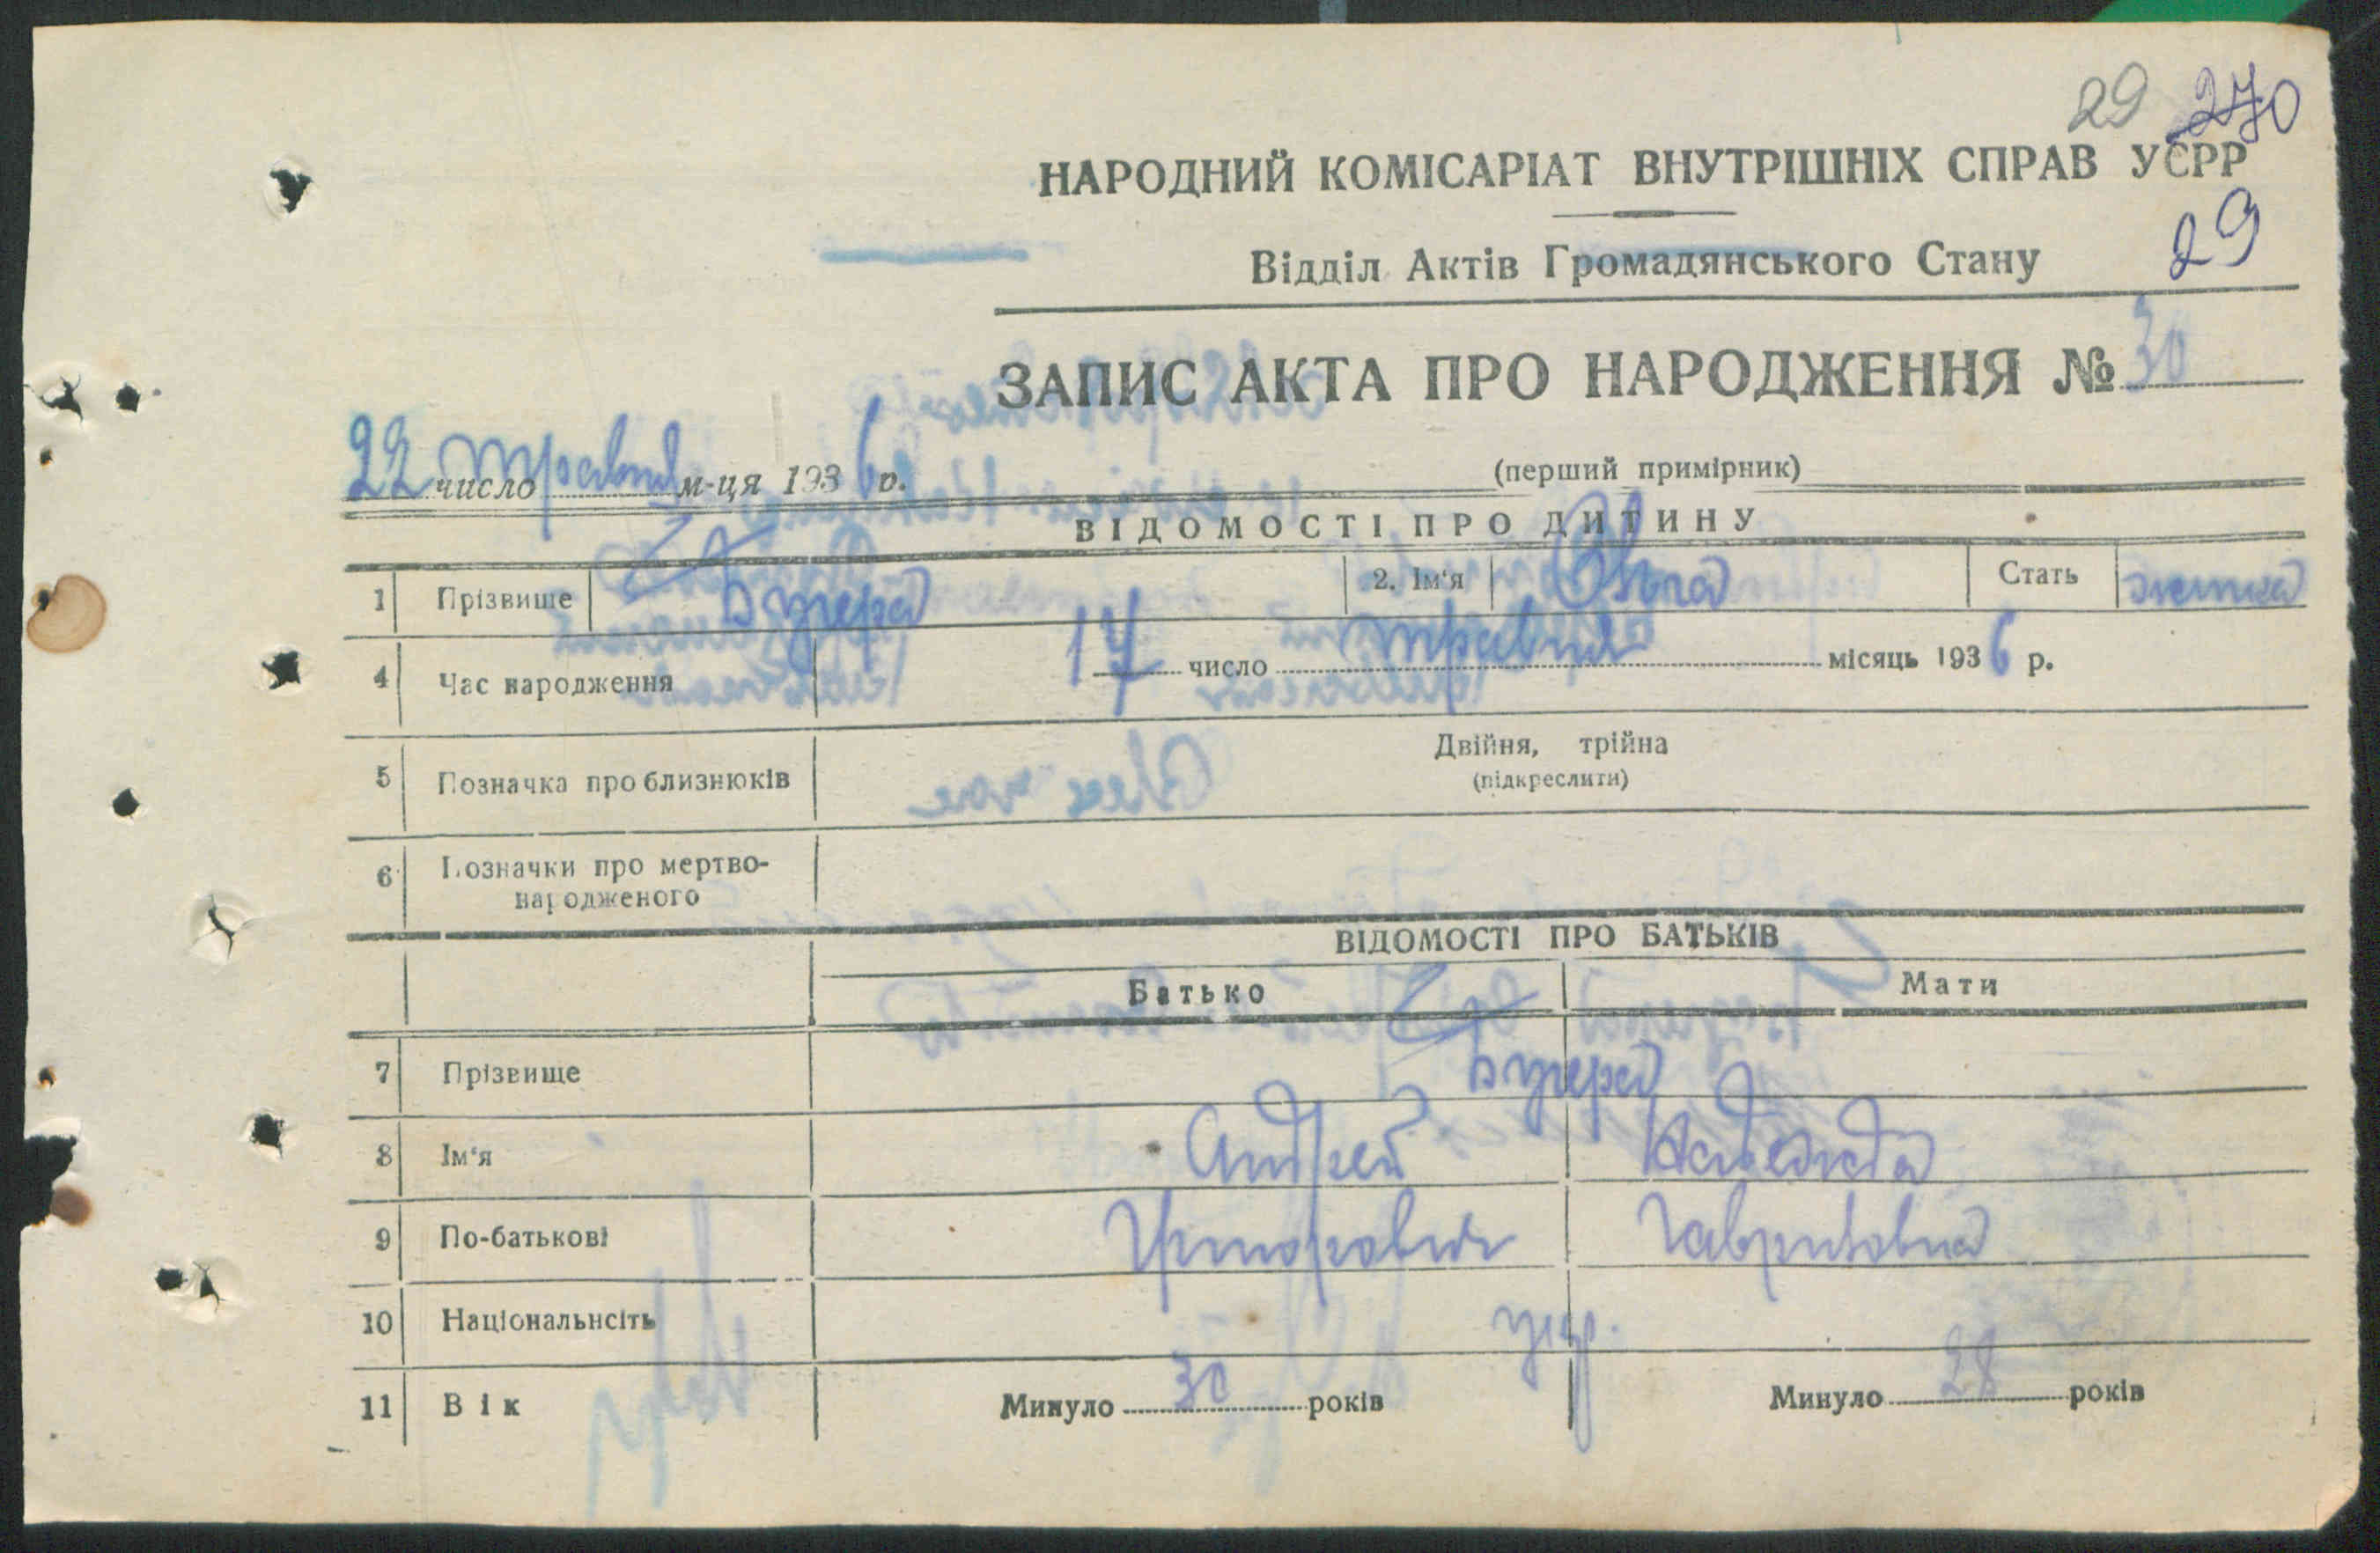 29 270
НАРОДНИЙ КОМІСАРІАТ ВНУТРІШНІХ СПРАВ УСРР
29
Відділ Актів Громадянського Стану
ЗАПИС АКТА ПРО НАРОДЖЕННЯ № 30
22 число травня м-ця 1936 р.
(перший примірник)
ВІДОМОСТІ ПРО ДИТИНУ
1 Прізвище 2. Ім'я Ольга Стать жіноча
4 Час народження 17 число травня місяць 1936 р.
5 Позначка про близнюків Двійня, трійна
(підкреслити)
6 Позначки про мертво-
народженого
ВІДОМОСТІ ПРО БАТЬКІВ
Батько Мати
7 Прізвище
8 Ім'я Андрей
9 По-батькові Гавриловна
10 Національнсіть укр.
11 Вік Минуло 30 років Минуло 28 років